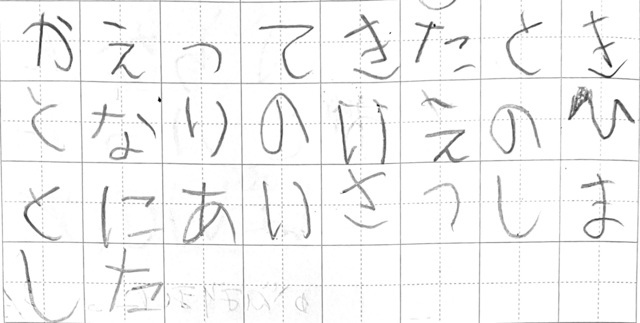 かえってきたとき
となりのいえのひ
とにあいさつしま
した